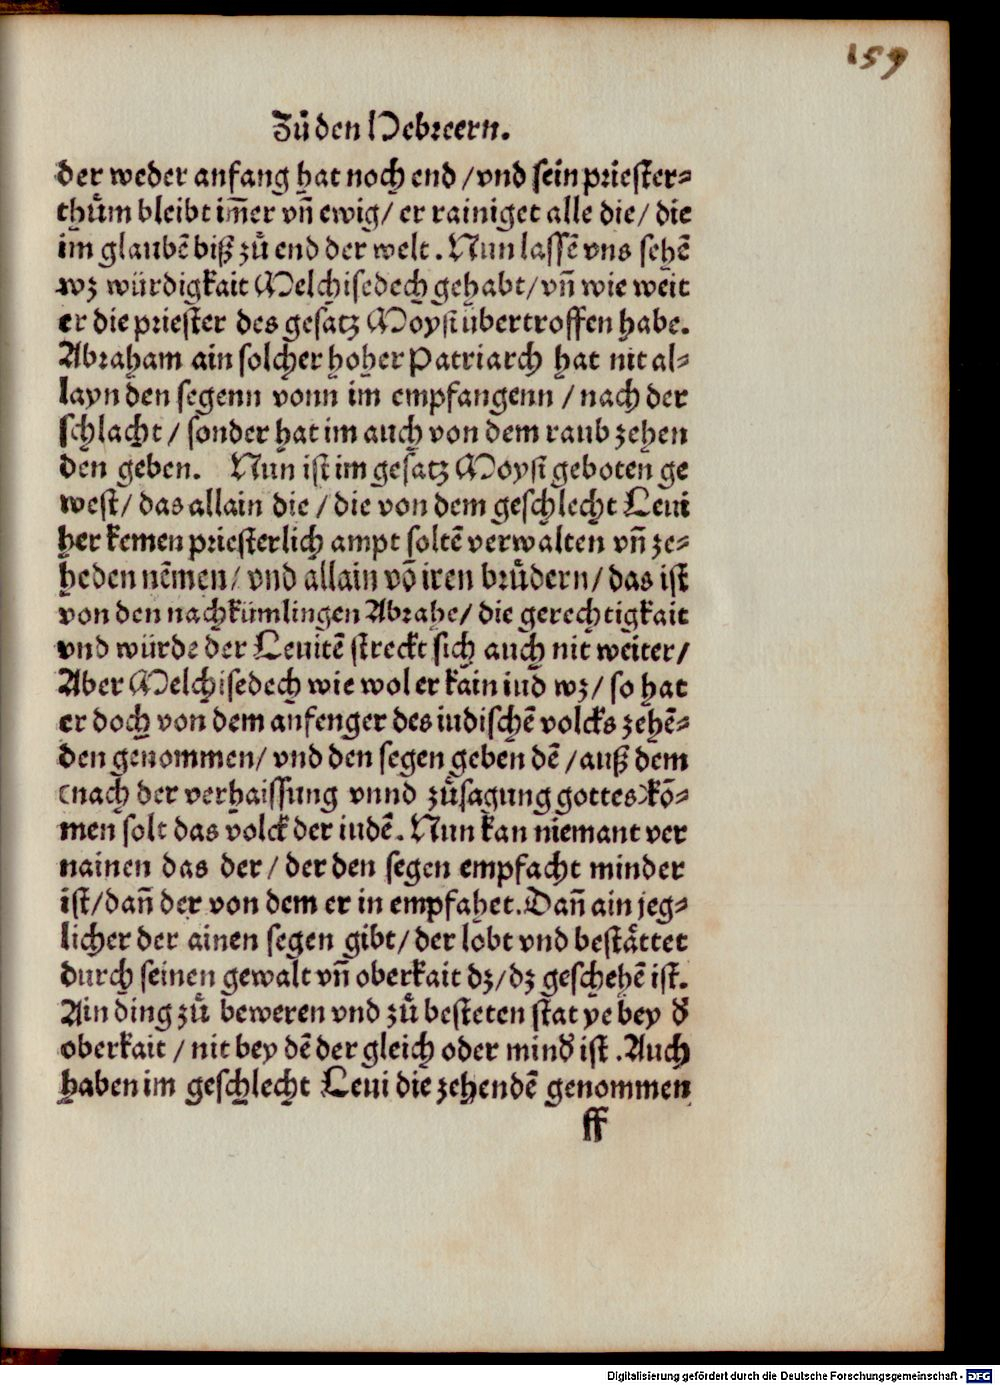 159
Zů den Hebreern.
der weder anfang hat noch end / vnd sein priester⸗
thům bleibt im̄er vn̄ ewig / er rainiget alle die / die
im glaubē biß zů end der welt . Nun lassē vns sehē
wz würdigkait Melchisedech gehabt / vn̄ wie weit
er die priester des gesatz Moysi übertroffen habe.
Abraham ain solcher hoher Patriarch hat nit al⸗
layn den segenn vonn im empfangenn / nach der
schlacht / sonder hat im auch von dem raub zehen
den geben. Nun ist im gesatz Moysi geboten ge
west / das allain die / die von dem geschlecht Leui
her kemen priesterlich ampt soltē verwalten vn̄ ze⸗
heden nēmen / vnd allain vō iren brůdern / das ist
von den nachkümlingen Abrahe / die gerechtigkait
vnd würde der Leuitē streckt sich auch nit weiter /
Aber Melchisedech wie wol er kain iud wz / so hat
er doch von dem anfenger des iudischē volcks zehē⸗
den genommen / vnd den segen geben dē / auß dem
(nach der verhaissung vnnd zůsagung gottes) kō⸗
men solt das volck der iudē . Nun kan niemant ver
nainen das der / der den segen empfacht minder
ist / dan̄ der von dem er in empfahet. Dan̄ ain jeg⸗
licher der ainen segen gibt / der lobt vnd bestättet
durch seinen gewalt vn̄ oberkait dz / dz geschehē ist.
Ain ding zů beweren vnd zů besteten stat ye bey d̛
oberkait / nit bey dē der gleich oder mind̛ ist . Auch
haben im geschlecht Leui die zehendē genommen
ff
Digitalisierung gefördert durch die Deutsche Forschungsgemeinschaft - DFG